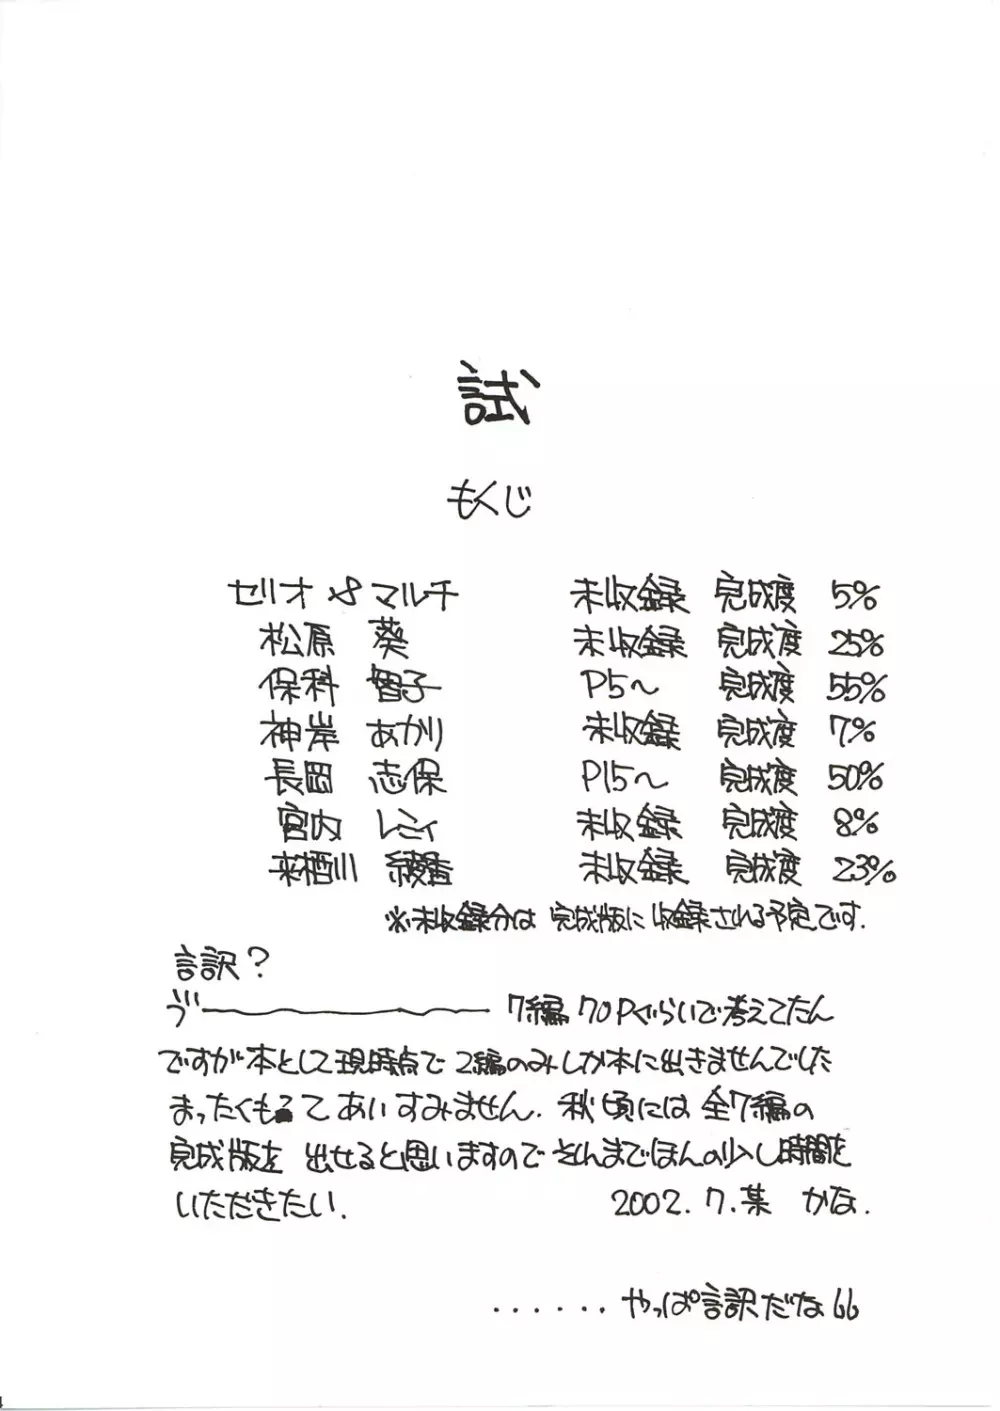 試
もくじ
セリオ & マルチ 未収録 完成度 5%
松原 葵 未収録 完成度 25%
保科 智子 P5〜 完成度 55%
神岸 あかり 未収録 完成度 7%
長岡 志保 P15〜 完成度 50%
宮内 レミィ 未収録 完成度 8%
来栖川 綾香 未収録 完成度 23%
※未収録分は 完成版に収録される予定です.
言訳?
7編 70Pぐらいで考えてたん
ですが本として現時点で2編のみしか本に出きませんでした
まったくもって あいすみません. 秋頃には 全7編の
完成版を 出せると思いますので それまでほんの少し時間を
いただきたい. 2002.7.某 かな.
......やっぱ言訳だな